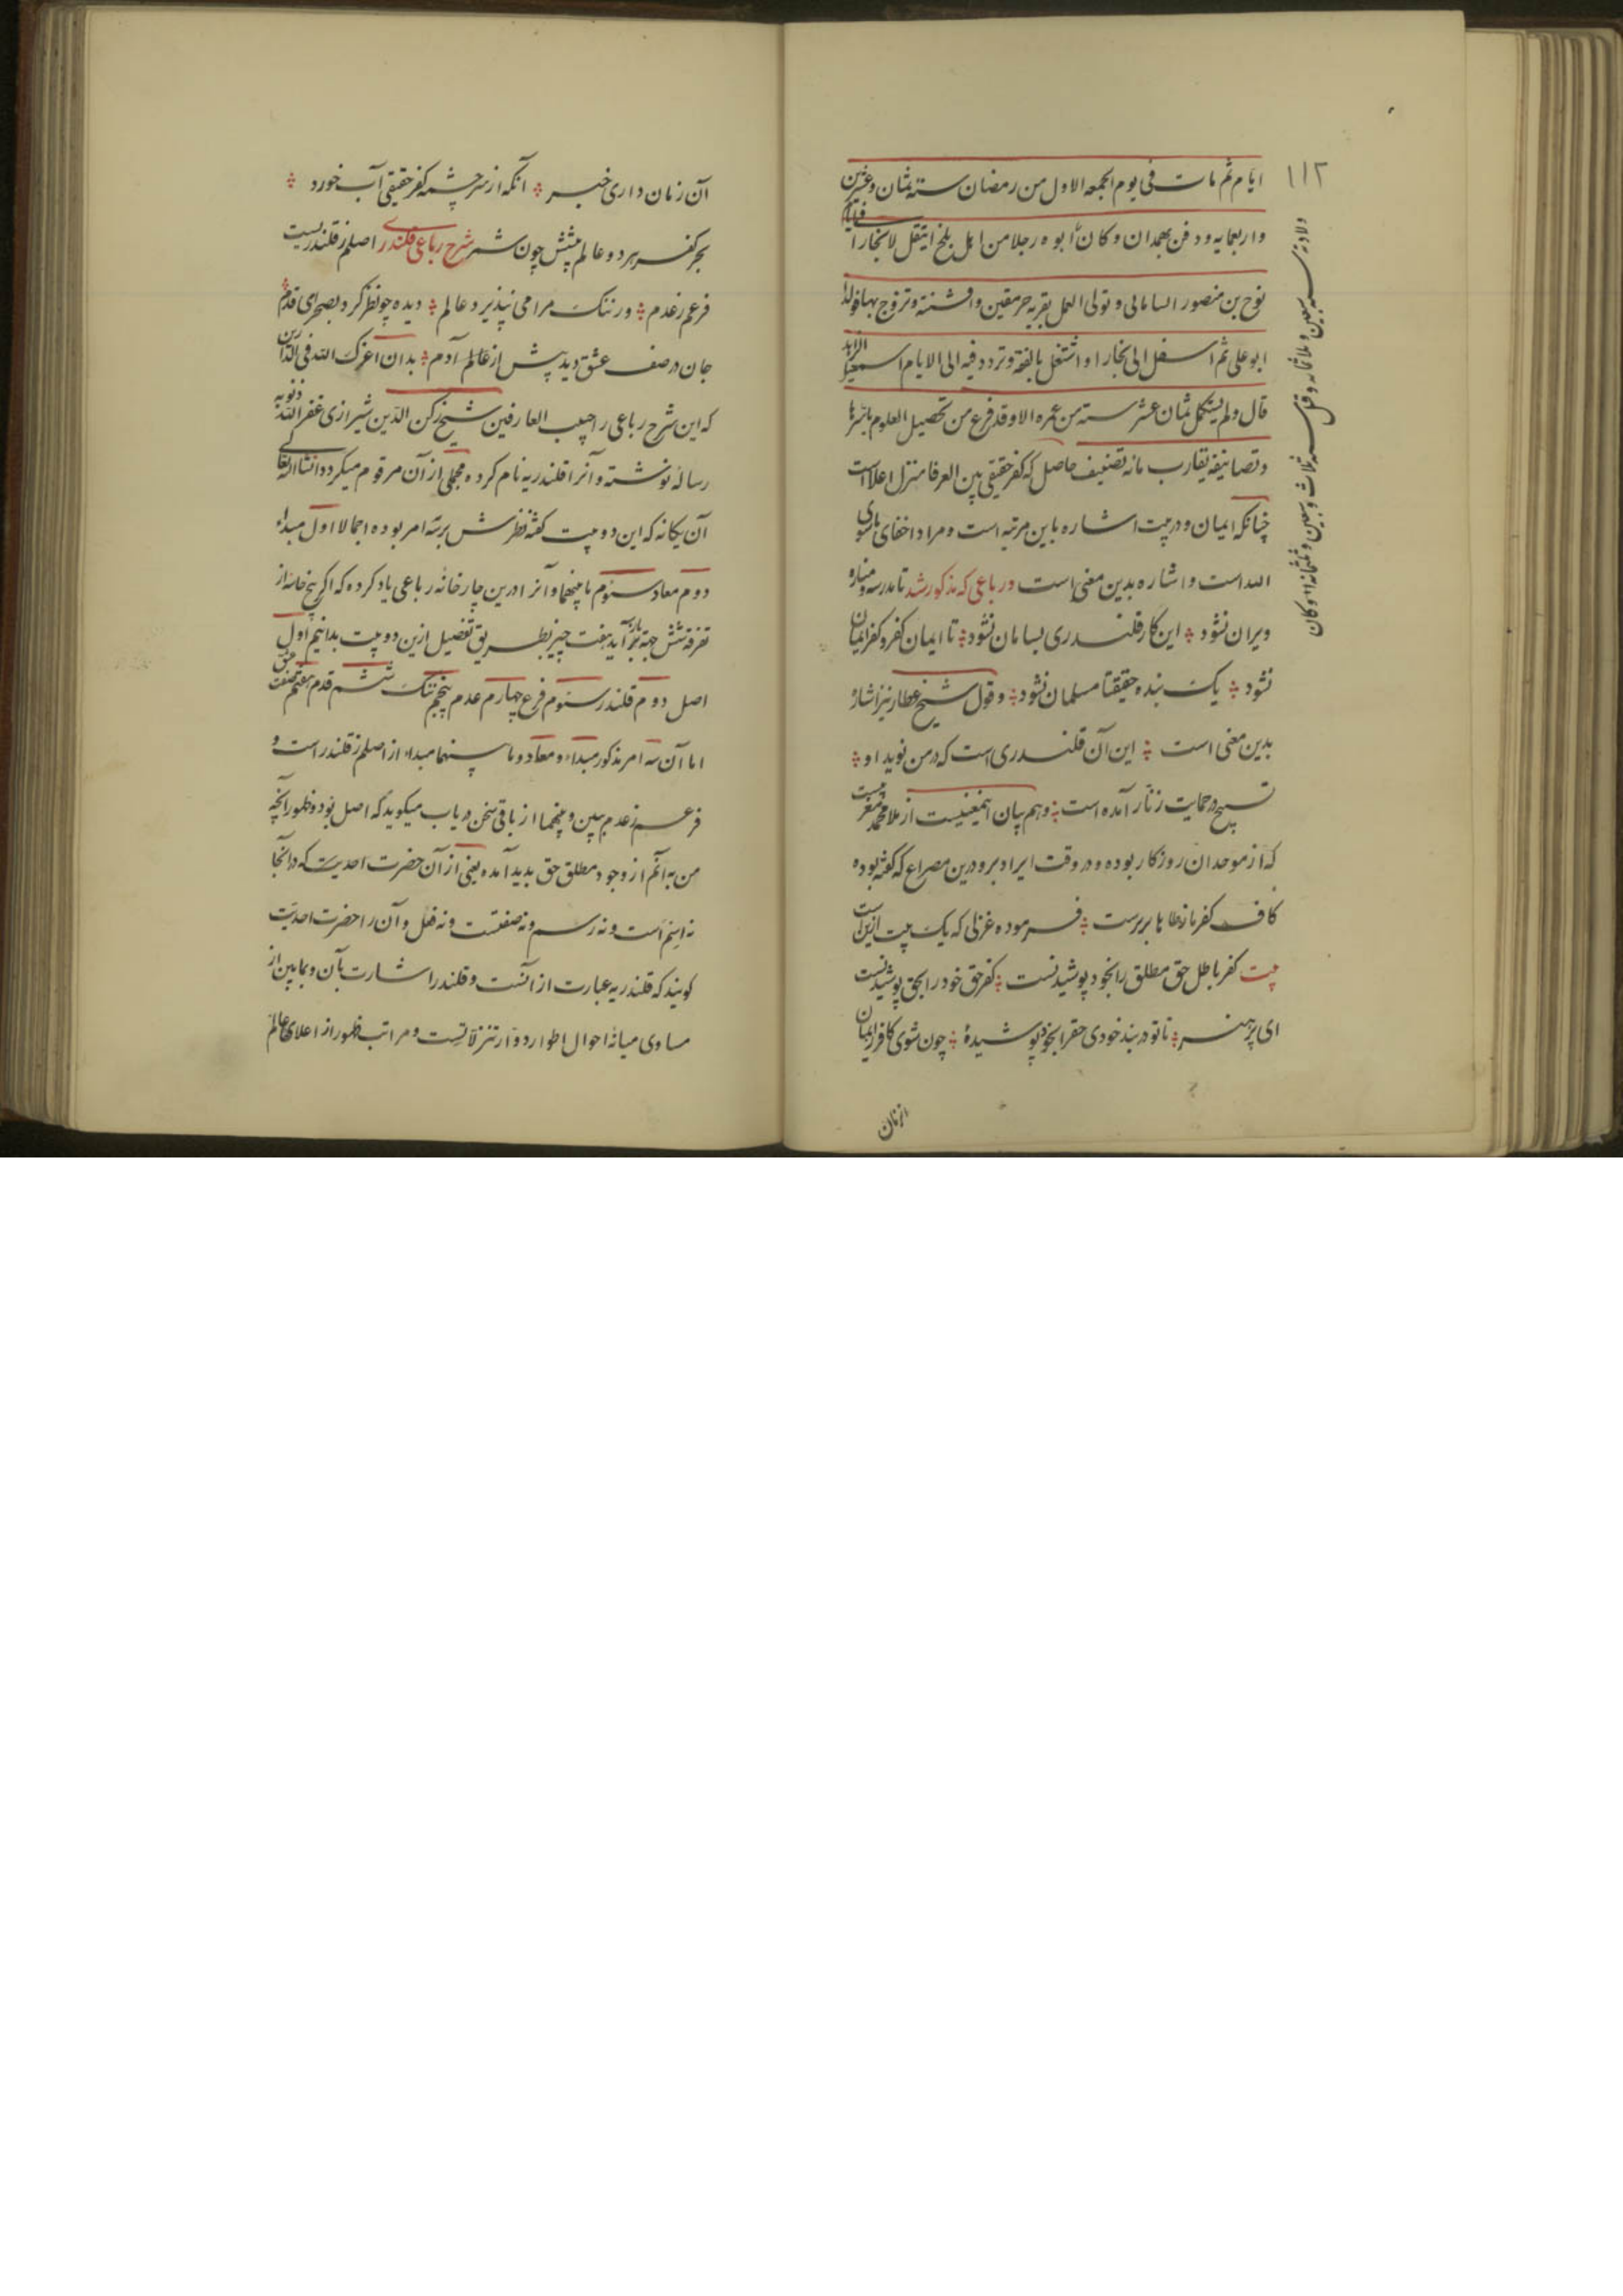 ۱۱۲
ایام ثم مات فی یوم الجمعه الاول من رمضان سنه ثمان و عشرین
واربعمایه ودفن بهمدان وکان ابوه رجلا من اهل بلخ انتقل لا بخارا فی ایام
نوح بن منصور السامانی وتولی العمل بقریه خرمیثن وافشنه وتزوج بها فولد
ابو علی ثم انتقل الی بخارا واشتغل بالفقه وتردد فیه الی الامام اسمعیل الزاهد
قال ولم یستکمل ثمان عشر سنه من عمره الا وقد فرغ من تحصیل العلوم باسرها
وتصانیفه یقارب مائه تصنیف حاصل که کفر حقیقی بین العرفا منزل اعلاست
چنانکه ایمان و در بیت اشاره باین مرتبه است و مراد اخفای ماسوی
الله است و اشاره بدین معنی است در رباعی که مذکور شد تا مدرسه و مناره
ویران نشود این کار قلندری بسامان نشود تا ایمان کفر و کفر ایمان
نشود یک بنده حقیقتا مسلمان نشود و قول شیخ عطار نیز اشاره
بدین معنی است این آن قلندری است که در من نوید او
تسبیح در حمایت زنار آمده است و هم بیان اینمعنیست از ملا محمد مغربیست
که از موحدان روزکار بوده و در وقت ایراد برو درین مصراع که کفته بوده
کاف کفر ما ز طا ها برترست فرموده غزلی که یک بیت ازین است
بیت کفر باطل حق مطلق را بخود پوشیدنست کفر حق خود را بحق پوشیدنست
ای پر هنر تا تو در بند خودی حقرا بخود پوشیدۀ چون شوی کافر ز ایمان
انزمان
ولادته سنه سبعین و ثلاثمائه و قیل سنه ثلاث و سبعین و ثلثمائه وکان
آن زمان داری خبر انکه از سرچشمه کفر حقیقی آب خورد
بحر کفر هر دو عالم پیشش چون شمر شرح رباعی قلندری اصلم ز قلندریست
فرعم ز عدم ور ننک مرا می نپذیرد عالم دیده چو نظر کرد بصحرای قدم
جان در صف عشق دید پیش از عالم آدم بدان اعزک الله فی الدارین
که این شرح رباعی را حبیب العارفین شیخ رکن الدین شیرازی غفر الله ذنوبه
رسالۀ نوشته و آنرا قلندریه نام کرده مجملی از آن مرقوم میکردد انشا الله تعالی
آن یکانه که این دو بیت کفته نظرش بر سه امر بوده اجمالا اول مبداء
دوم معاد سیوم ما بینهما و آنرا درین چارخانه رباعی یاد کرده که اکر پنج خانه از
تفرقه شش جهة باز آید هفت چیز بطریق تفضیل ازین دو بیت بدانیم اول
اصل دوم قلندر سیوم فرع چهارم عدم پنجم ننک ششم قدم هفتم صف عشق
اما آن سه امر مذکور مبداء و معاد و ما بینهما مبداء از اصلم ز قلندر است و
فرعم ز عدم ببین و بینهما از باقی سخن دریاب میکوید که اصل بود و ظهور انچه
من به آنم از وجود مطلق حق بدید آمده یعنی از آن حضرت احدیت که در آنجا
نه اسم است و نه رسم و نه صفتست و نه فعل و آن را حضرت احدیت
کویند که قلندریه عبارت از آنست و قلندر اشارت بآن و بما بین از
مساوی میانۀ احوال اطوار دوار تنزلاتست و مراتب ظهور از اعلای عالم